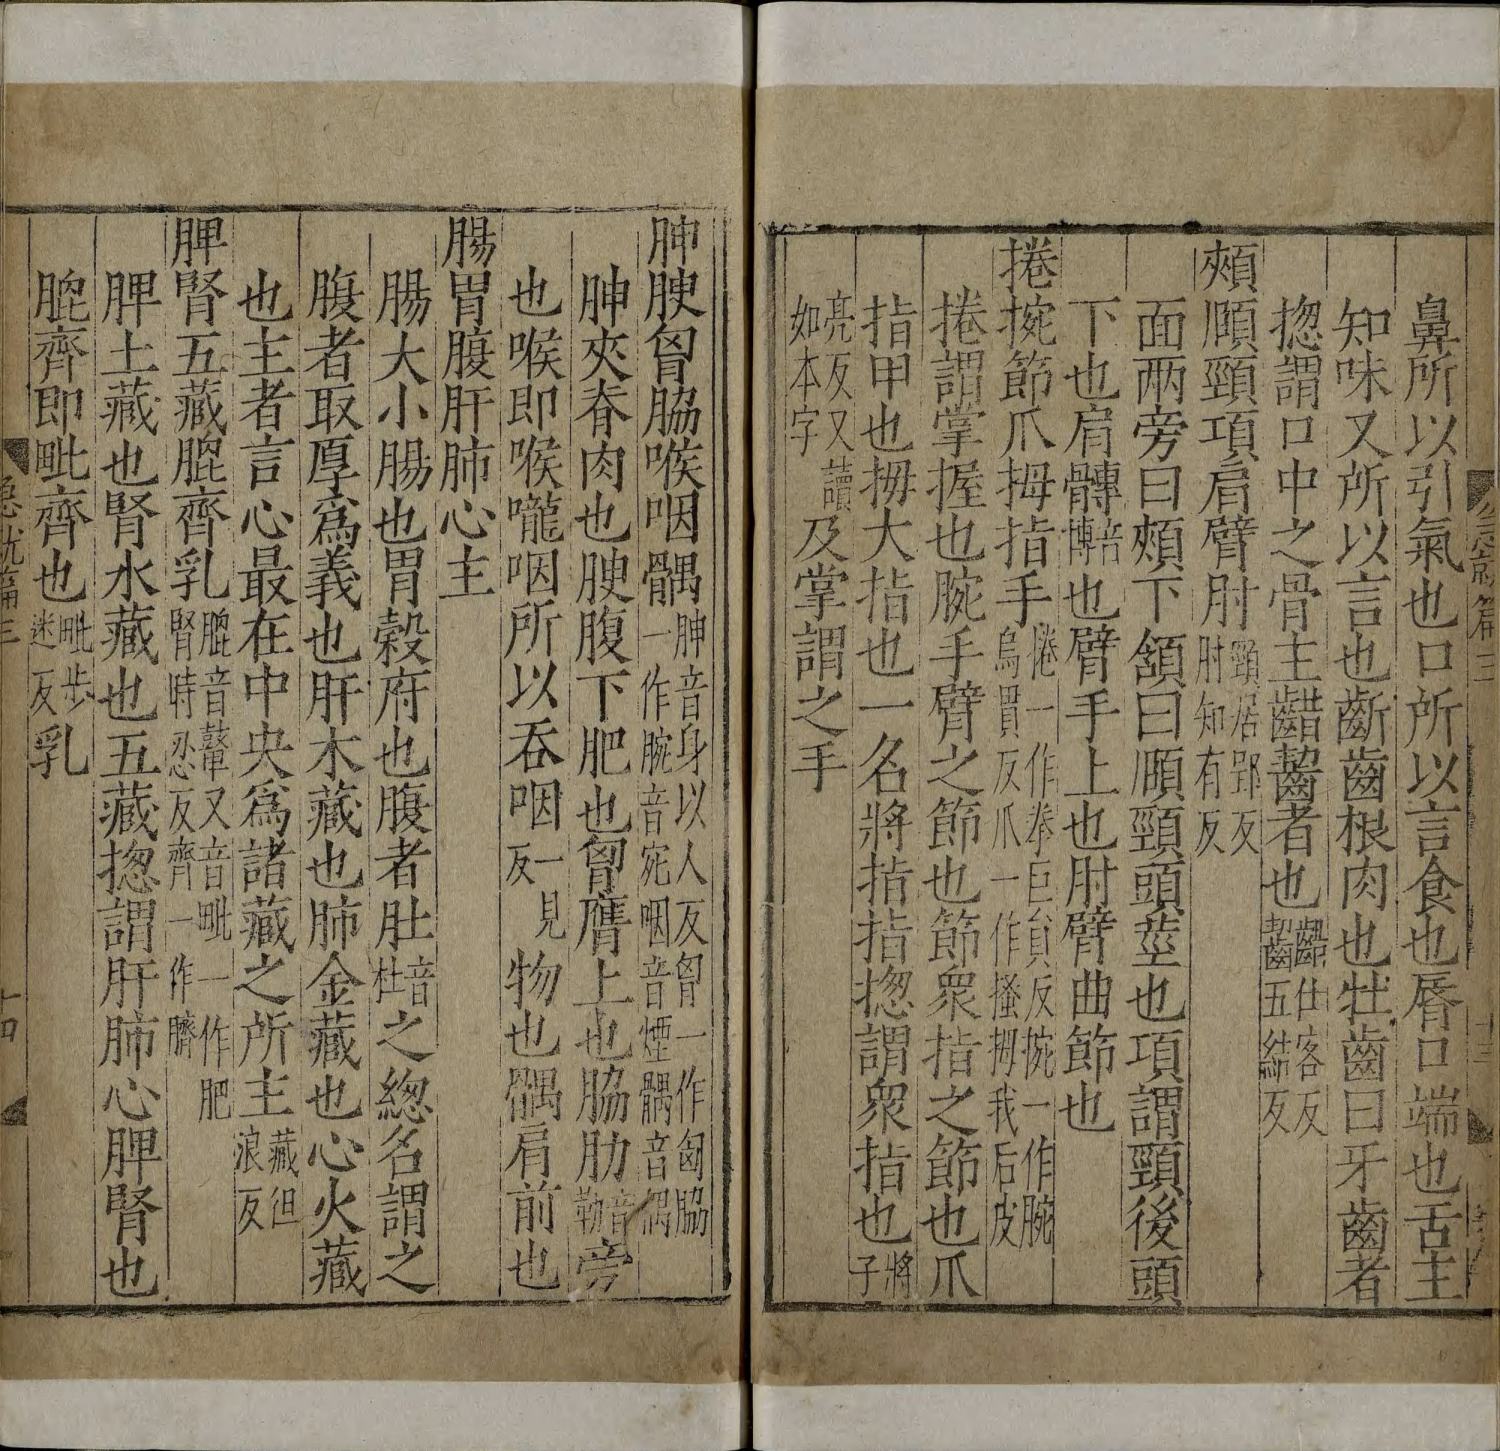 鼻所以引氣也口所以言食也脣口端也舌主
知味又所以言也齗齒根肉也牡齒曰牙齒者
揔謂口中之骨主齰齧者也齰仕客反齧五結反
頰頤頸項肩臂肘頸居郢反肘知有反
面兩旁曰頰下頷曰頤頸頭莖也項謂頸後頭
下也肩髆髆音博也臂手上也肘臂曲節也
捲捥節爪拇指手捲一作拳巨貟反捥一作腕烏貫反爪一作搔拇我后皮
捲謂掌握也腕手臂之節也節衆指之節也爪
指甲也拇大指也一名將指指揔謂衆指也將子
亮反又如本字讀及掌謂之手
急就篇三
十三
胂腴匈脇喉咽髃胂音身以人反匈一作胷脇一作腕音宛咽音煙髃音偶
胂夾脊肉也腴腹下肥也匈膺上也脇肋音勒旁
也喉即喉嚨咽所以吞咽一見反物也髃肩前也
腸胃腹肝肺心主
腸大小腸也胃穀府也腹者肚音杜之總名謂之
腹者取厚爲義也肝木藏也肺金藏也心火藏
也主者言心最在中央爲諸藏之所主藏徂浪反
脾腎五藏膍齊乳膍音鼙又音毗一作肥腎時忍反齊一作臍
脾土藏也腎水藏也五藏揔謂肝肺心脾腎也
膍齊即毗齊也毗步迷反乳
急就篇三
十四